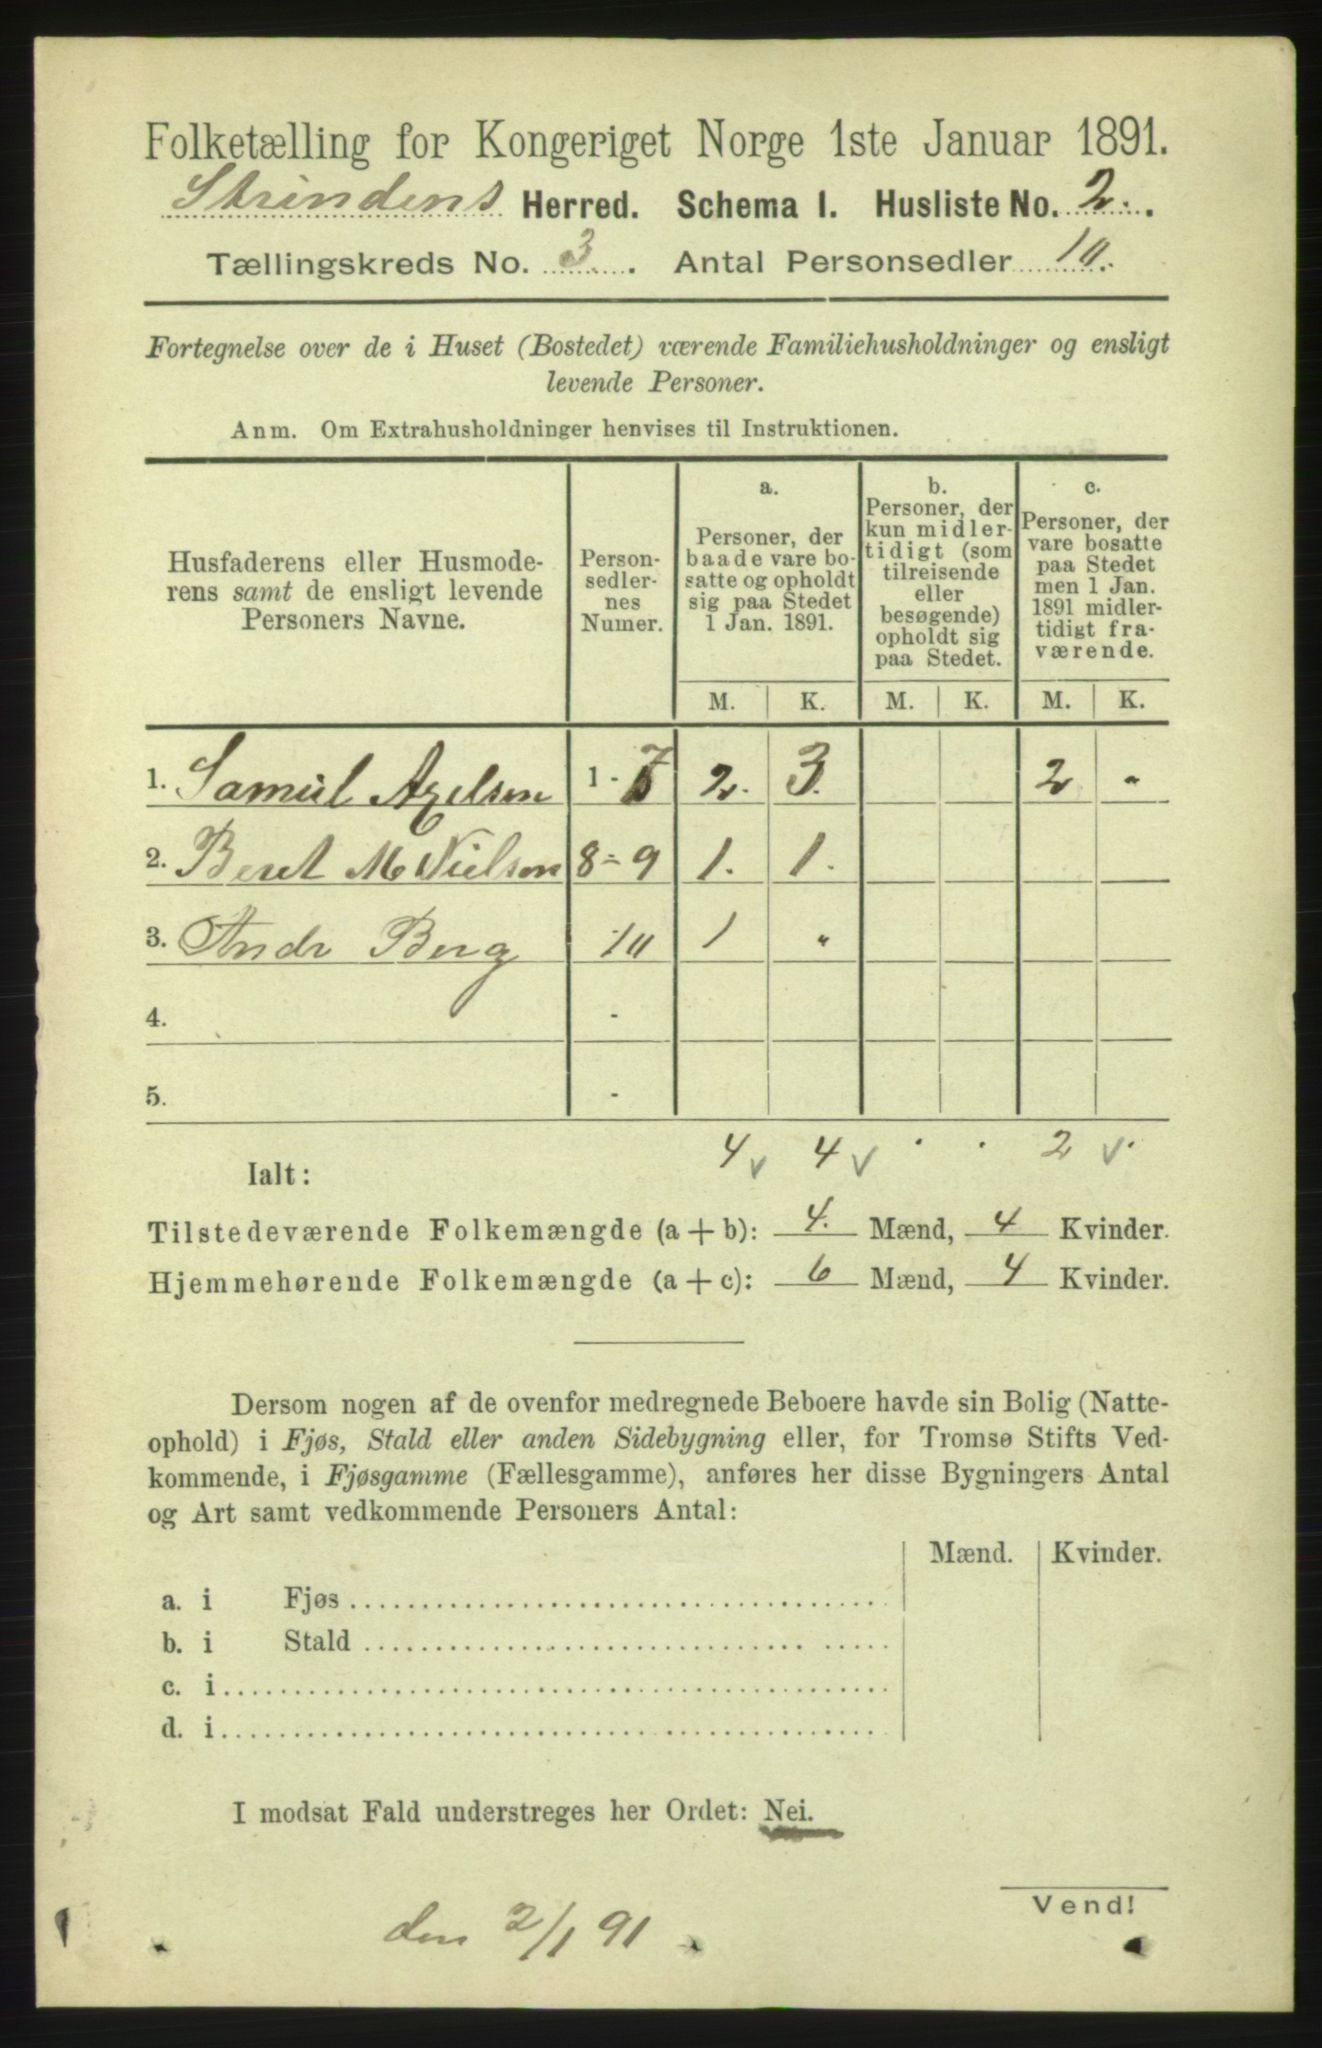 Folketælling for Kongeriget Norge 1ste Januar 1891.
Strindens Herred. Schema I. Husliste No. 2.
Tællingskreds No. 3. Antal Personsedler 10.
Fortegnelse over de i Huset (Bostedet) værende Familiehusholdninger og ensligt
levende Personer.
Anm. Om Extrahusholdninger henvises til Instruktionen.
Husfaderens eller Husmode-
rens samt de ensligt levende
Personers Navne.
Person-
sedler-
nes
Numer.
a.
Personer, der
baade vare bo-
satte og opholdt
sig paa Stedet
1 Jan. 1891.
b.
Personer, der
kun midler-
tidigt (som
tilreisende
eller
besøgende)
opholdt sig
paa Stedet.
c.
Personer, der
vare bosatte
paa Stedet
men 1 Jan.
1891 midler-
tidigt fra-
værende.
M. K. M. K. M. K.
1. Samuel Axelsen 1 - 7 2. 3. 2 "
2. Beret M Nielsen 8 - 9 1. 1.
3. Andr Berg 10 1 "
4. -
5. -
Ialt: 4 v 4 v . . 2 v .
Tilstedeværende Folkemængde (a + b): 4. Mænd, 4 Kvinder.
Hjemmehørende Folkemængde (a + c): 6 Mænd, 4 Kvinder.
Dersom nogen af de ovenfor medregnede Beboere havde sin Bolig (Natte-
ophold) i Fjøs, Stald eller anden Sidebygning eller, for Tromsø Stifts Ved-
kommende, i Fjøsgamme (Fællesgamme), anføres her disse Bygningers Antal
og Art samt vedkommende Personers Antal:
Mænd. Kvinder.
a. i Fjøs
b. i Stald
c. i
d. i
I modsat Fald understreges her Ordet: Nei.
Vend!
den 2/1 91